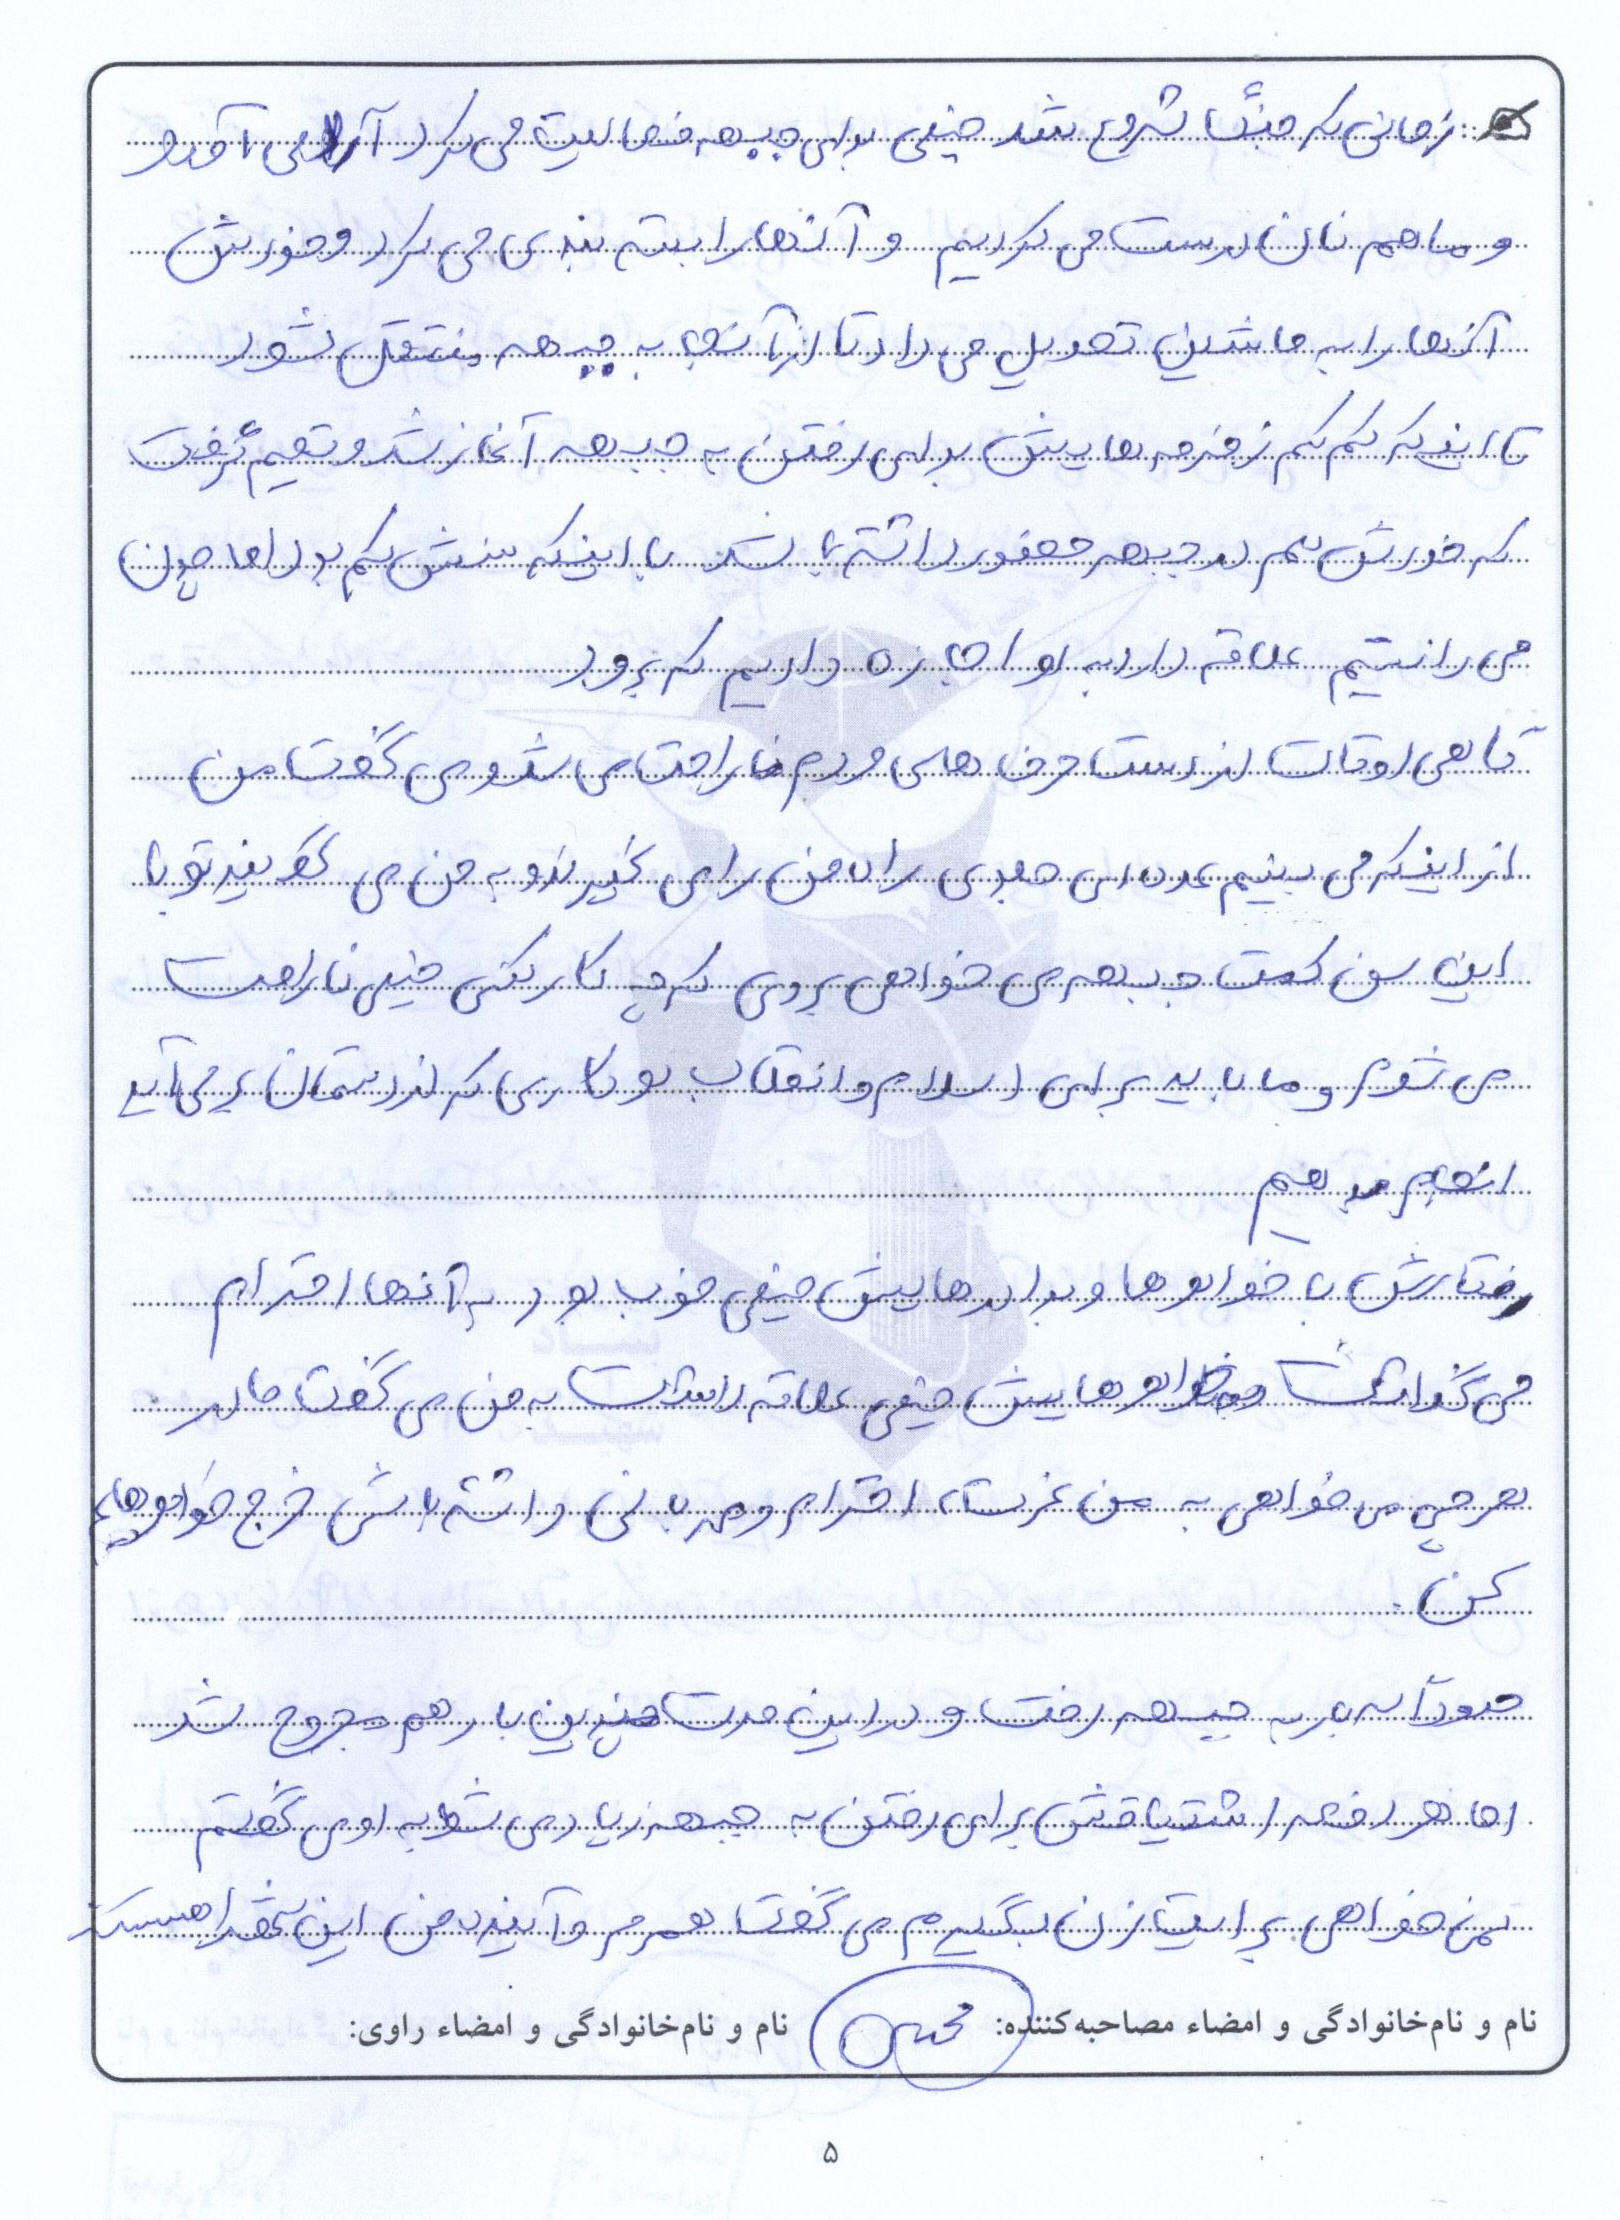 زمانی که جنگ شروع شد خیلی برای جبهه فعالیت می کرد آرد می آورد
و ما هم نان درست می کردیم و آنها را بسته بندی می کرد و خودش
آنها را به ماشین تحویل می داد تا از آنجا به جبهه منتقل شود
تا اینکه کم کم زمزمه هایش برای رفتن به جبهه آغاز شد و تصمیم گرفت
که خودش هم در جبهه حضور داشته باشد با اینکه سنش کم بود اما چون
می دانستیم علاقه دارد به او اجازه دادیم که برود
گاهی اوقات از دست حرف های مردم ناراحت می شد و می گفت من
از اینکه می بینم عده ای جلوی راه من را می گیرند و به من می گویند تو با
این سن کمت جبهه می خواهی بروی که چه کار بکنی خیلی ناراحت
می شوم و ما باید برای اسلام و انقلاب هر کاری که از دستمان بر می آید
انجام بدهیم
رفتارش با خواهرها و برادرهایش خیلی خوب بود به آنها احترام
می گذاشت و به خواهرهایش خیلی علاقه داشت به من می گفت مادر
هر چه می خواهی به من عزت، احترام و مهربانی داشته باشی خرج خواهرهایم
کن.
حدوداً سه بار به جبهه رفت و در این مدت چندین بار هم مجروح شد
اما هر دفعه اشتیاقش برای رفتن به جبهه زیاد می شد به او می گفتم
نمی خواهی برایت زن بگیرم می گفت همسر و آینده من این تفنگ است
نام و نام‌خانوادگی و امضاء مصاحبه‌کننده: نام و نام‌خانوادگی و امضاء راوی:
۵